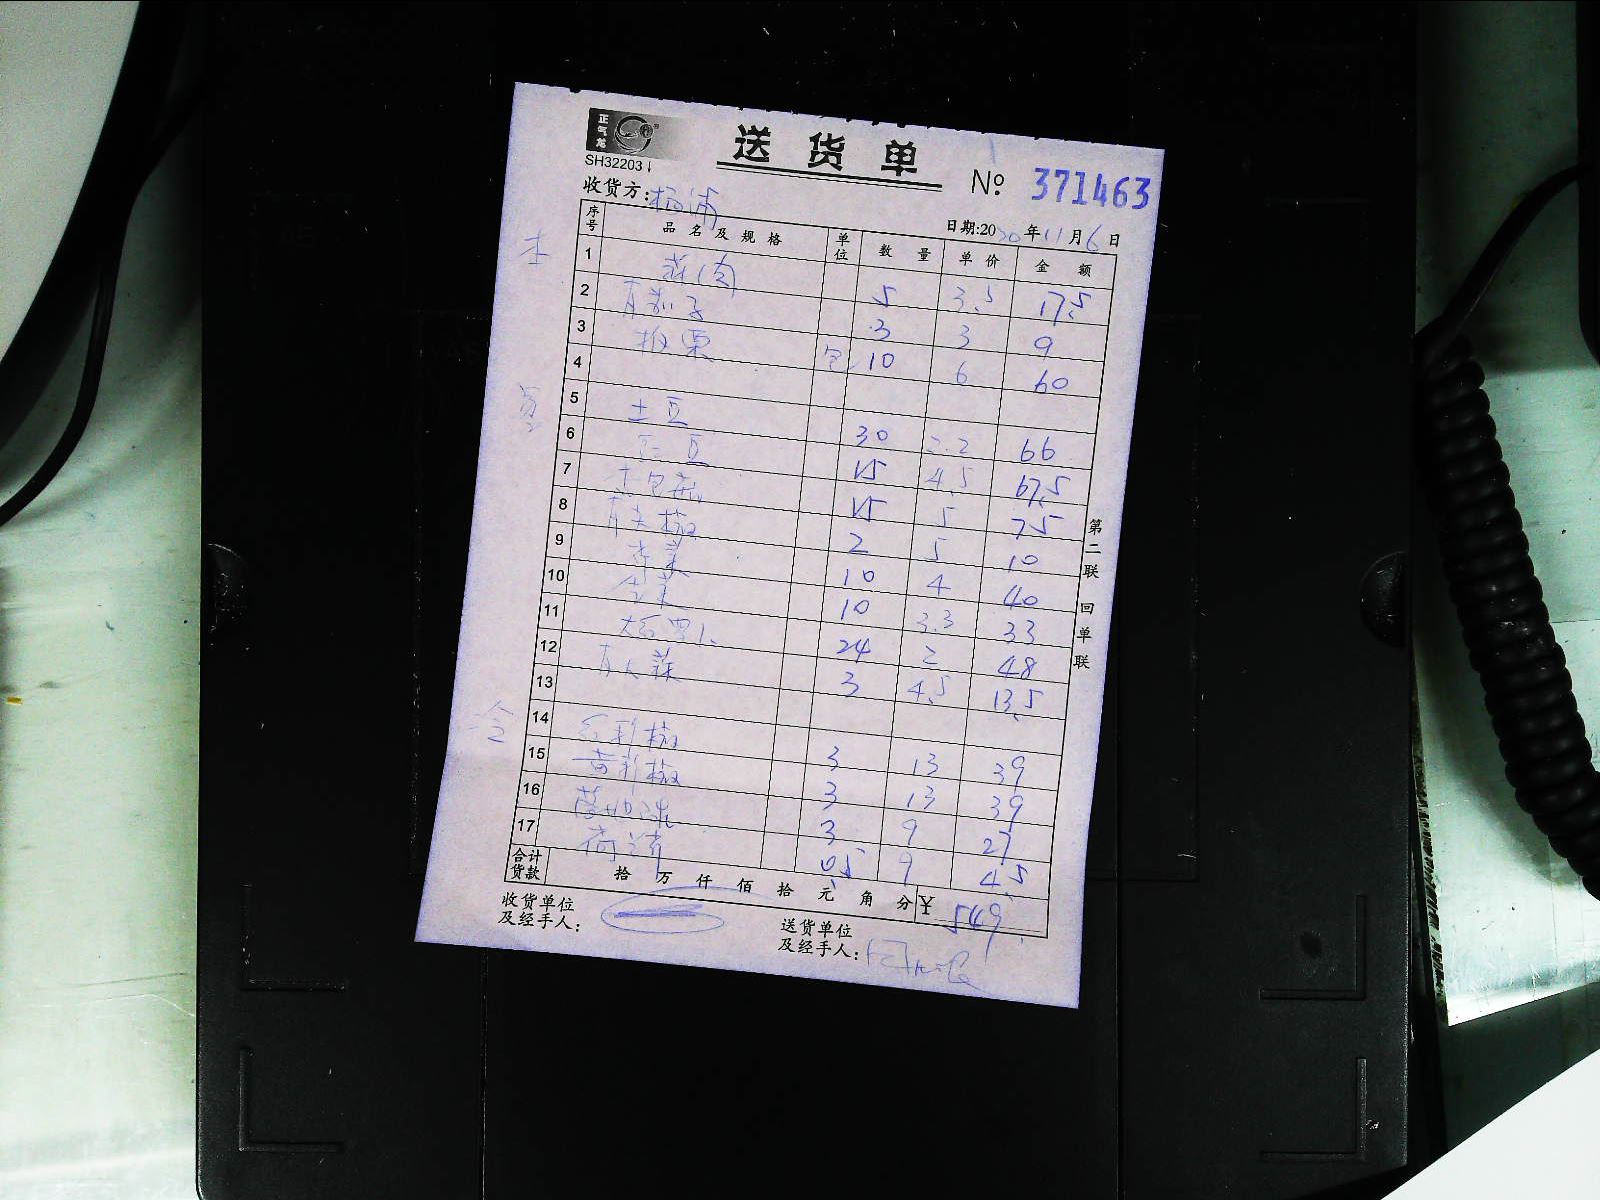 正气龙
送货单
SH32203
№ 371463
收货方：杨浦
日期:2020年11月6日
序号 品名及规格 单位 数量 单价 金额
本
1 5 3.5 17.5
2 青茄子 3 3 9
3 板栗 包 10 6 60
4
5 土豆 30 2.2 66
6 豆 15 4.5 67.5
7 杏包菇 15 5 75
8 青尖椒 2 5 10
9 10 4 40
10 10 3.3 33
11 大白萝卜 24 2 48
12 3 4.5 13.5
13
冷
14 红彩椒 3 13 39
15 黄彩椒 3 13 39
16 3 9 27
17 0.5 9 4.5
合计货款 拾 万 仟 佰 拾 元 角 分 ¥ 549.
收货单位及经手人：
送货单位及经手人：
第二联 回单联